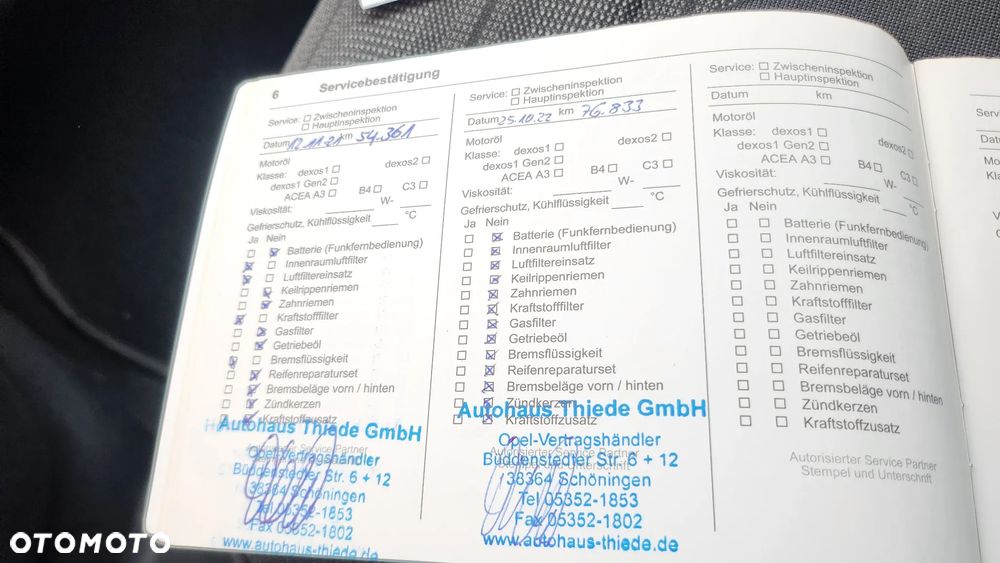 6 Servicebestätigung
Service: Zwischeninspektion
Hauptinspektion
Datum 12.11.21 km 54.361
Motoröl
Klasse: dexos1 dexos2
dexos1 Gen2
ACEA A3 B4 C3
Viskosität: W-
Gefrierschutz, Kühlflüssigkeit °C
Ja Nein
Batterie (Funkfernbedienung)
Innenraumluftfilter
Luftfiltereinsatz
Keilrippenriemen
Zahnriemen
Kraftstofffilter
Gasfilter
Getriebeöl
Bremsflüssigkeit
Reifenreparaturset
Bremsbeläge vorn / hinten
Zündkerzen
Kraftstoffzusatz
Autohaus Thiede GmbH
Autorisierter Service Partner
Opel-Vertragshändler
Büddenstedter Str. 6 + 12
38364 Schöningen
Tel 05352-1853
Fax 05352-1802
www.autohaus-thiede.de
Service: Zwischeninspektion
Hauptinspektion
Datum 25.10.22 km 76.833
Motoröl
Klasse: dexos1 dexos2
dexos1 Gen2
ACEA A3 B4 C3
Viskosität: W-
Gefrierschutz, Kühlflüssigkeit °C
Ja Nein
Batterie (Funkfernbedienung)
Innenraumluftfilter
Luftfiltereinsatz
Keilrippenriemen
Zahnriemen
Kraftstofffilter
Gasfilter
Getriebeöl
Bremsflüssigkeit
Reifenreparaturset
Bremsbeläge vorn / hinten
Zündkerzen
Kraftstoffzusatz
Autohaus Thiede GmbH
Opel-Vertragshändler
Autorisierter Service Partner
Büddenstedter Str. 6 + 12
Stempel und Unterschrift
38364 Schöningen
Tel 05352-1853
Fax 05352-1802
www.autohaus-thiede.de
Service: Zwischeninspektion
Hauptinspektion
Datum km
Motoröl
Klasse: dexos1 dexos2
dexos1 Gen2
ACEA A3 B4 C3
Viskosität: W-
Gefrierschutz, Kühlflüssigkeit °C
Ja Nein
Batterie (Funkfernbedienung)
Innenraumluftfilter
Luftfiltereinsatz
Keilrippenriemen
Zahnriemen
Kraftstofffilter
Gasfilter
Getriebeöl
Bremsflüssigkeit
Reifenreparaturset
Bremsbeläge vorn / hinten
Zündkerzen
Kraftstoffzusatz
Autorisierter Service Partner
Stempel und Unterschrift
OTOMOTO